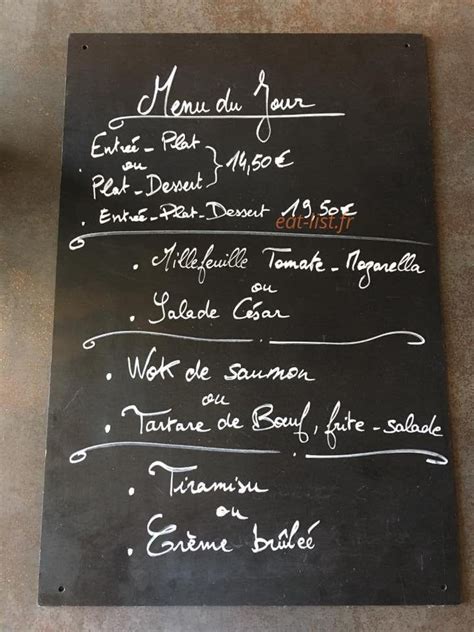 Menu du Jour
. Entrée-Plat
ou
Plat-Dessert } 14,50€
. Entrée-Plat-Dessert 19,50€
eat-list.fr
. Millefeuille Tomate-Mozarella
ou
. Salade César
. Wok de saumon
ou
. Tartare de Bœuf, frite-salade
. Tiramisu
ou
. Crème brûleé